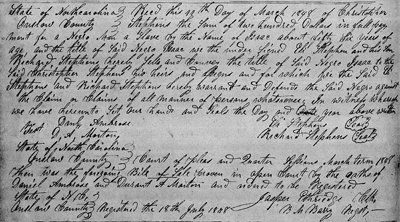 State of North Carolina } Recd this 19th Day of March 1848 of Christopher
Onslow County } Stephens the Sum of two hundred Dollars in full pay
ment for a Negro Man a Slave by the Name of Isaac about fifty five years of
age and the title of Said Negro Isaac we the under Signed Eli Stephen and his Son
Richard Stephens hereby Sells and Convey the title of Said Negro Isaac to the
Said Christopher Stephens his heirs and assigns and for which we the Said Eli
Stephens and Richard Stephens hereby warrant and Defends the Said Negro against
the Claim or Claims of all manner of persons whatsoever In witness whereof
we have hereunto Set our hands and Seals the Day and year above written
Danl Ambrose Eli Stephens (Seal)
Test D. A. Morton Richard Stephens (Seal)
State of North Carolina }
Onslow County } Court of Pleas and Quarter Sessions March term 1848
Then was the foregoing Bill of Sale proven in Open Court by the oaths of
Daniel Ambrose and Durant A Morton and ordered to be Registered
State of N. C. } Jasper Etheridge Clk
Onslow County } Registered the 18th July 1848 B. M. Barry Regr